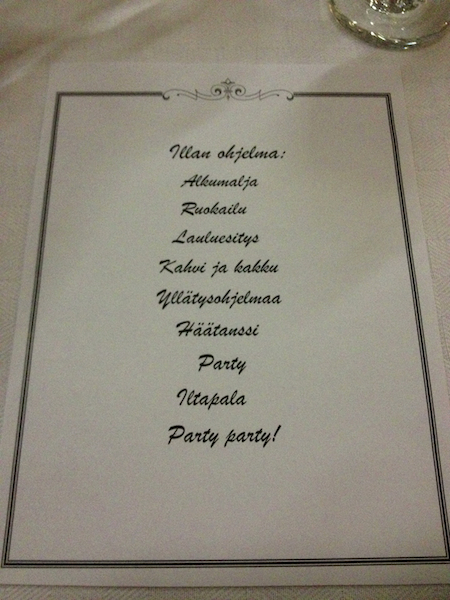 Illan ohjelma:
Alkumalja
Ruokailu
Lauluesitys
Kahvi ja kakku
Yllätysohjelmaa
Häätanssi
Party
Iltapala
Party party!